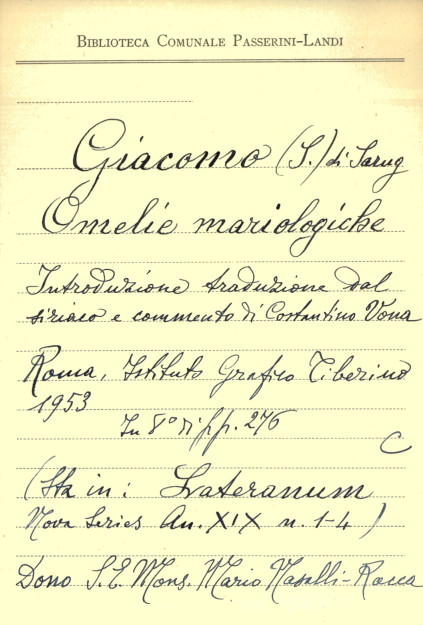 BIBLIOTECA COMUNALE PASSERINI-LANDI
Giacomo (S.) di Sarug
Omelie mariologiche
Introduzione traduzione dal
siriaco e commento di Costantino Vona
Roma, Istituto Grafico Tiberino
1953
In 8° di pp. 276
C
(Sta in: Lateranum
Nova Series An. XIX n. 1-4)
Dono S. E. Mons. Mario Nasalli-Rocca